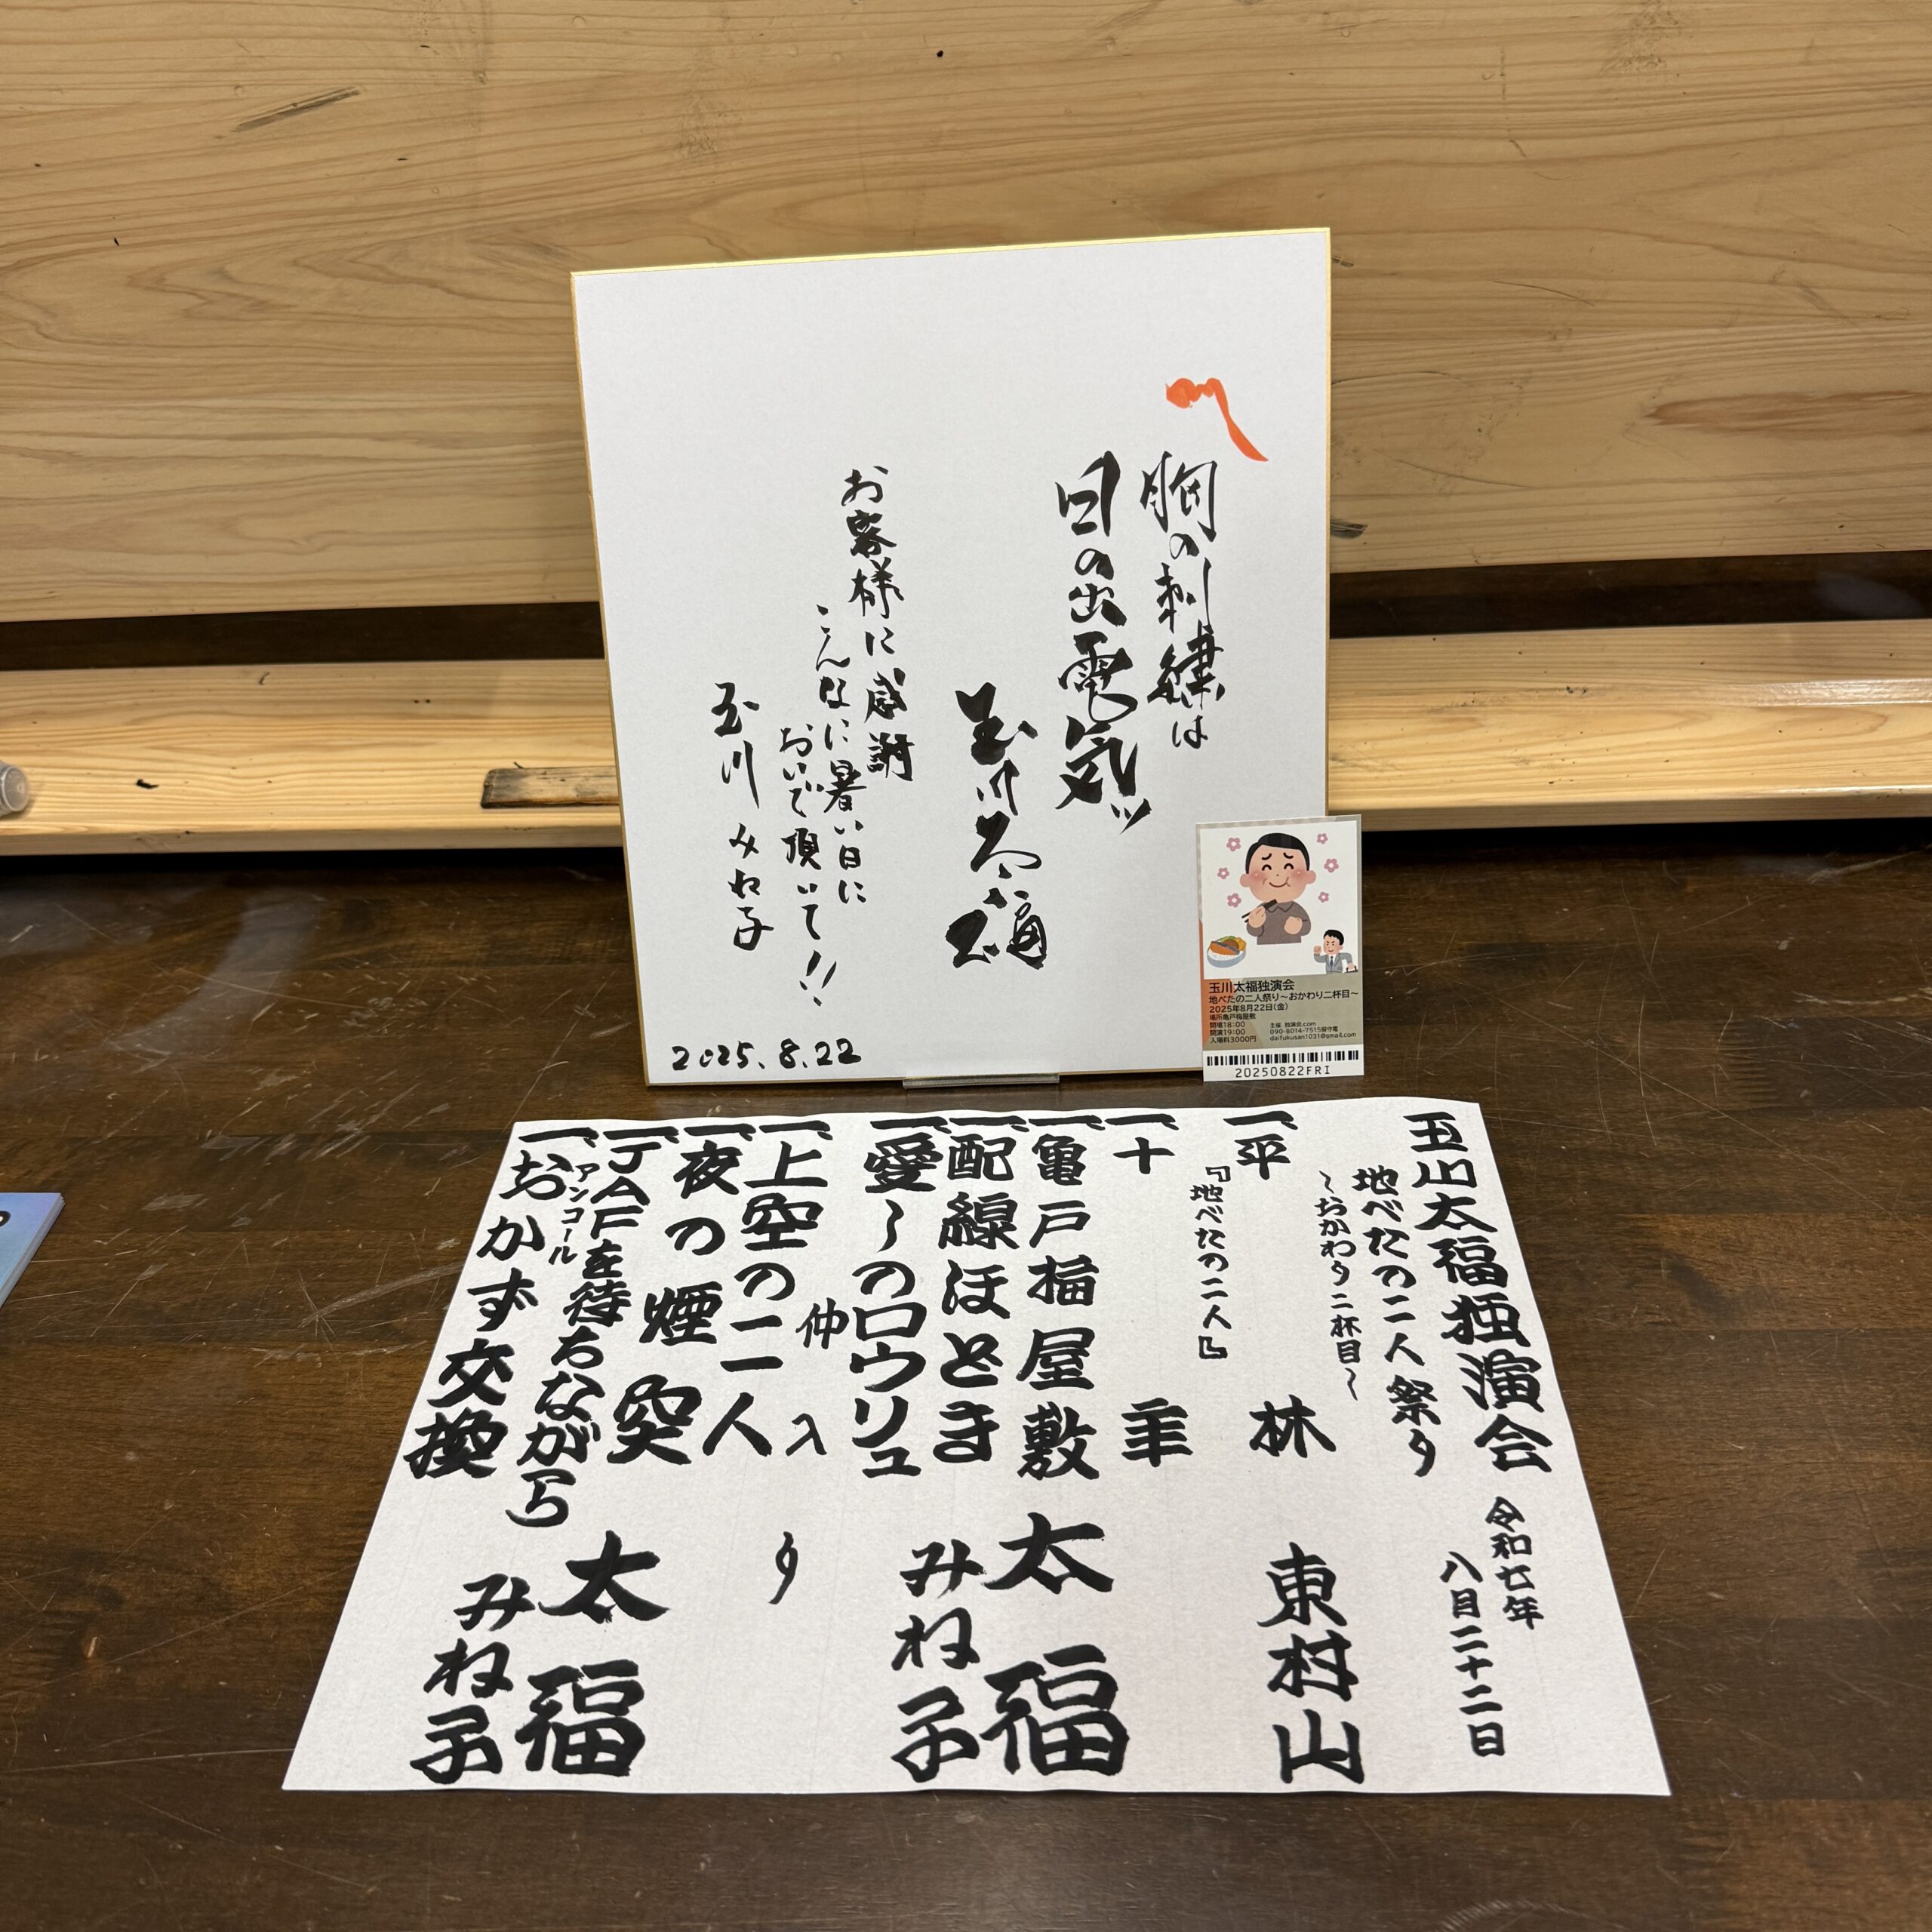 胸の刺繍は
日の出電気ッ
玉川太福
お客様に感謝
こんなに暑い日に
おいで頂いて!!
玉川みね子
2025.8.22
玉川太福独演会
地べたの二人祭り〜おかわり二杯目〜
2025年8月22日(金)
場所亀戸梅屋敷
開場18:00
開演19:00
入場料3000円
主催 独演会.com
090-8014-7515留守電
daifukusan1031@gmail.com
20250822FRI
玉川太福独演会 令和七年
八月二十二日
地べたの二人祭り
〜おかわり二杯目〜
一、平林 東村山
『地べたの二人』
一、十年
一、亀戸梅屋敷 太福
一、配線ほどき みね子
一、愛〜のロウリュ
仲入り
一、上空の二人
一、夜の煙突 太福
一、JAFを待ちながら みね子
アンコール
一、おかず交換